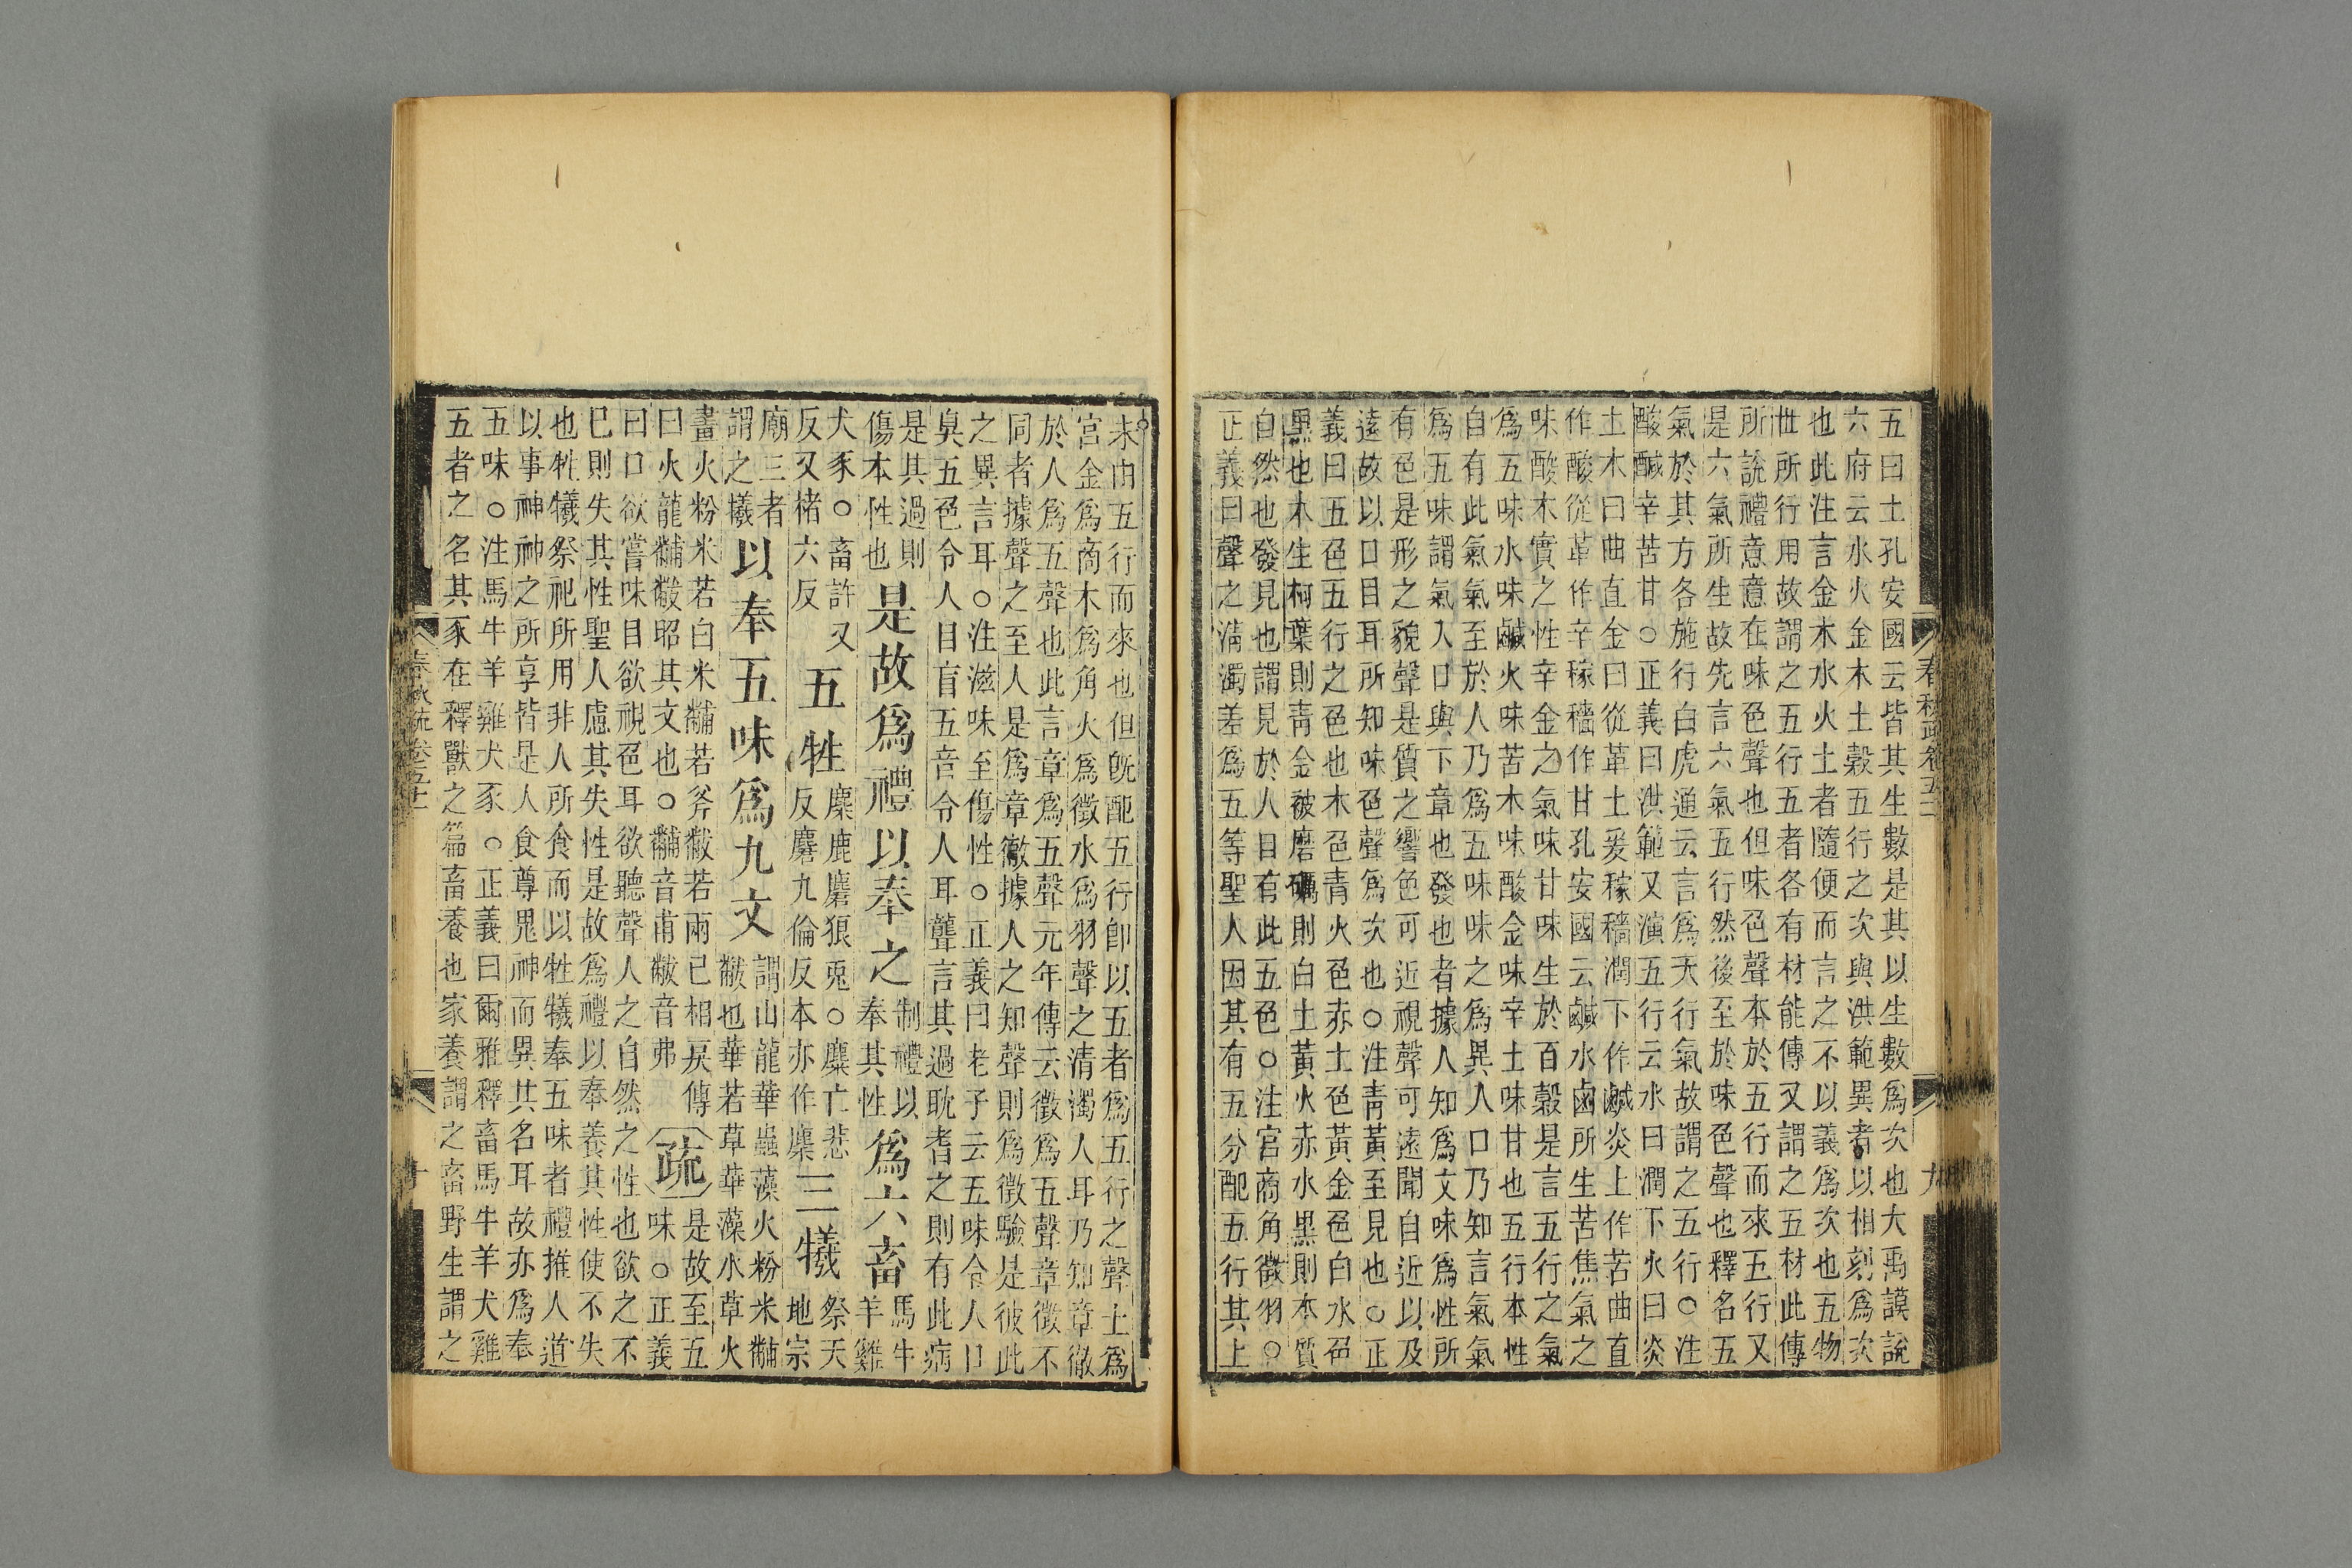 五曰土孔安國云皆其生數是其以生數爲次也大禹謨說
六府云水火金木土穀五行之次與洪範異者以相刻爲次
也此注言金木水火土者隨便而言之不以義爲次也五物
世所行用故謂之五行五者各有材能傳又謂之五材此傳
所說禮意意在味色聲也但味色聲本於五行而來五行又
是六氣所生故先言六氣五行然後至於味色聲也釋名五
氣於其方各施行白虎通云言爲天行氣故謂之五行○注
酸鹹辛苦甘○正義曰洪範又演五行云水曰潤下火曰炎
土木曰曲直金曰從革土爰稼穡潤下作鹹炎上作苦曲直
作酸從革作辛稼穡作甘孔安國云鹹水鹵所生苦焦氣之
味酸木實之性辛金之氣味甘味生於百穀是言五行之氣
爲五味水味鹹火味苦木味酸金味辛土味甘也五行本性
自有此氣氣至於人乃爲五味味之爲異入口乃知言氣氣
爲五味謂氣入口與下章也發也者據人知爲文味爲性所
有色是形之貌聲是質之響色可近視聲可遠聞自近以及
遠故以口目耳所知味色聲爲次也○注青黃至見也○正
義曰五色五行之色也木色青火色赤土色黃金色白水色
黑也木生柯葉則青金被磨礪則白土黃火赤水黑則本質
自然也發見也謂見於人目有此五色○注宮商角徵羽○
正義曰聲之清濁差爲五等聖人因其有五分配五行其上
末由五行而來也但旣配五行卽以五者爲五行之聲土爲
宮金爲商木爲角火爲徵水爲羽聲之清濁人耳乃知章徹
於人爲五聲也此言章爲五聲元年傳云徵爲五聲章徵不
同者據聲之至人是爲章徹據人之知聲則爲徵驗是彼此
之異言耳○注滋味至傷性○正義曰老子云五味令人口
臭五色令人目盲五音令人耳聾言其過耽耆之則有此病
是其過則傷本性也是故爲禮以奉之制禮以奉其性爲六畜馬牛羊雞
犬豕○畜許又反又楮六反五牲麋鹿麏狼兎○麋亡悲反麏九倫反本亦作麇三犧祭天地宗
廟三者謂之犧以奉五味爲九文謂山龍華蟲藻火粉米黼黻也華若草華藻水草火
畫火粉米若白米黼若斧黻若兩已相戾傳曰火龍黼黻昭其文也○黼音甫黻音弗疏是故至五味○正義
曰口欲嘗味目欲視色耳欲聽聲人之自然之性也欲之不
已則失其性聖人慮其失性是故爲禮以奉養其性使不失
也牲犧祭祀所用非人所食而以牲犧奉五味者禮推人道
以事神神之所享皆是人食尊鬼神而異其名耳故亦爲奉
五味○注馬牛羊雞犬豕○正義曰爾雅釋畜馬牛羊犬雞
五者之名其豕在釋獸之篇畜養也家養謂之畜野生謂之